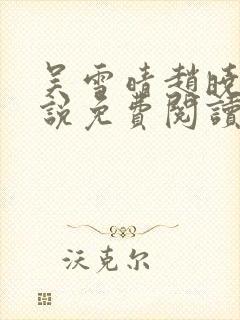 吴雪晴趙曉
說免費閱讀
沃克尔